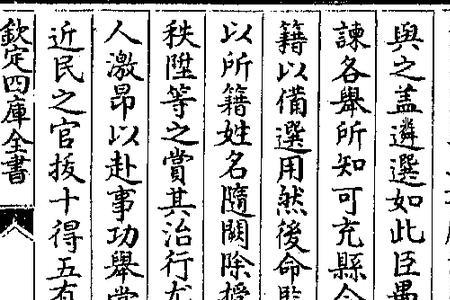 與之蓋遴選如此臣愚
諫各舉所知可充縣令
籍以備選用然後命
以所籍姓名隨闕除授
秩陞等之賞其治行尤
人激昂以赴事功舉當
近民之官拔十得五有
欽定四庫全書